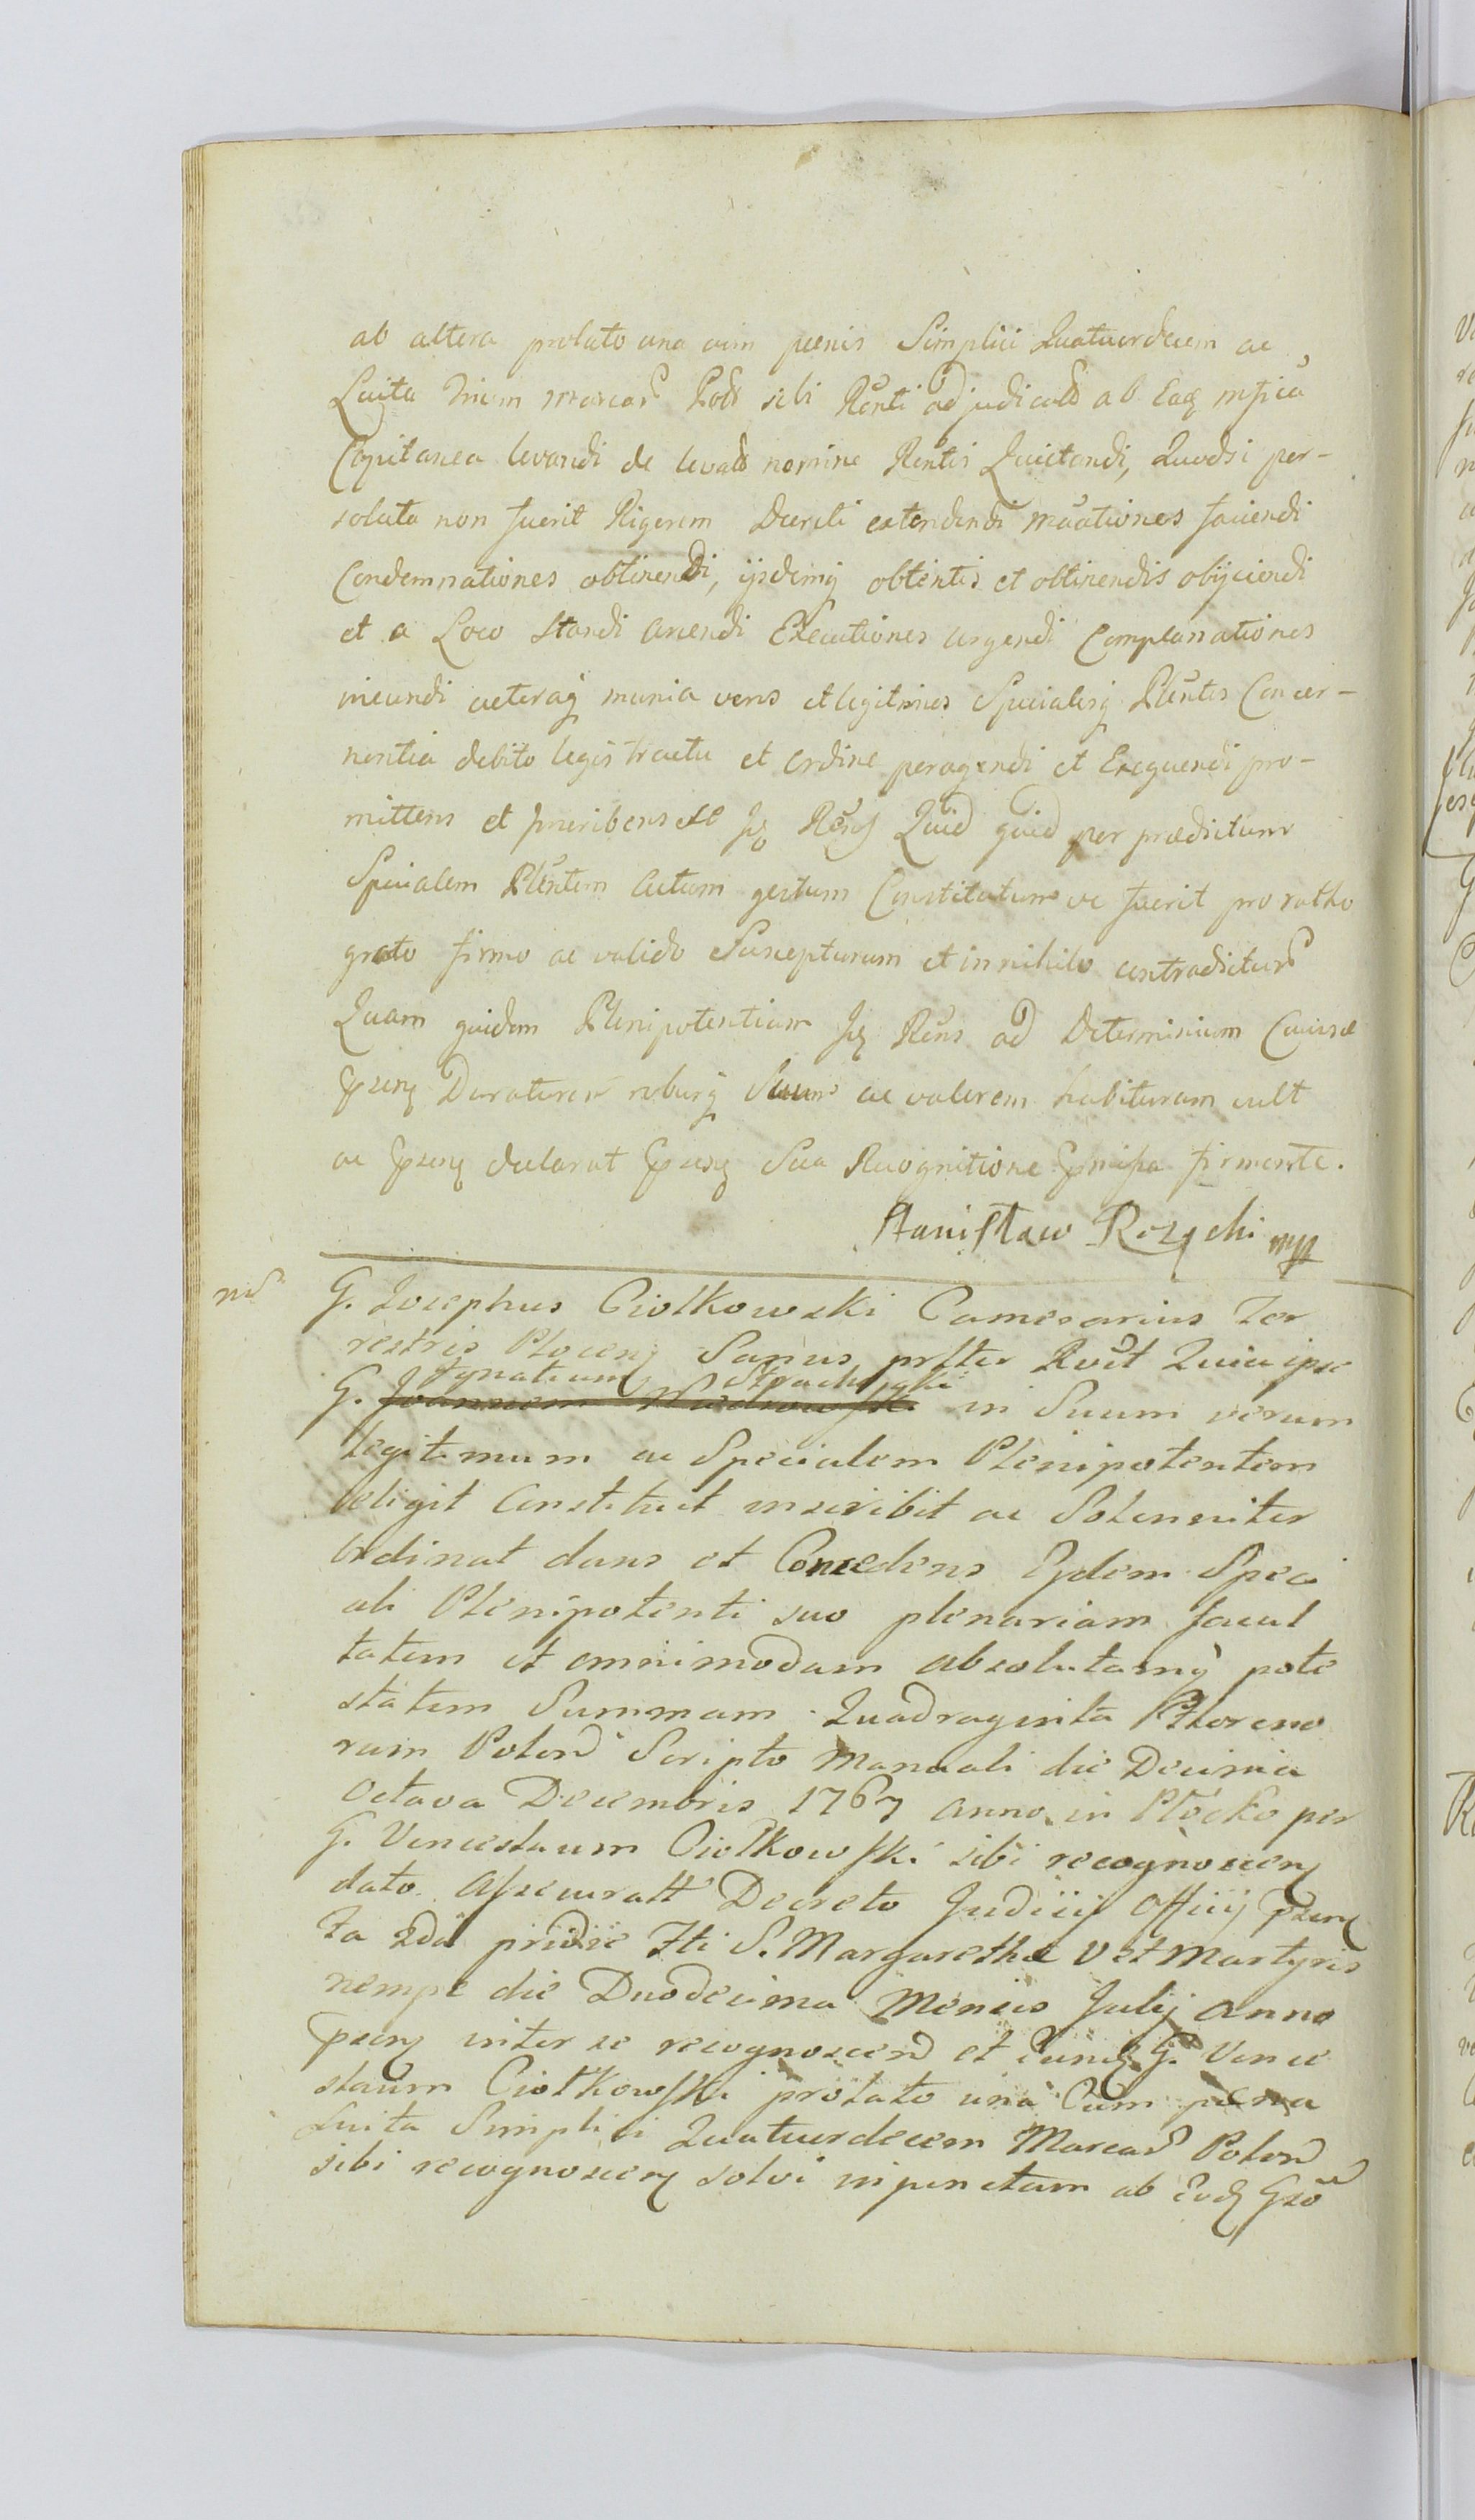 ab altera prolato una cum pœnis Simplici Quatuordecim ac
Luita Trium marcarꝰ Polꝰ sibi Rñti adjudicatꝰ ab Eaꝗ mfica
Capitanea levandi de levatꝰ nomine Rentis Quietandi, Quodsi per-
soluta non fuerit Rigorem Decreti extendendi moationes faciendi
Condemnationes obtinendi, ijsdemꝗ obtentis et obtinendis obijciendi
et a Loco standi arcendi Executiones urgendi Complanationes
ineundi cæteraꝗ munia veros et legitimos Specialesꝗ Plentes Concer-
nentia debito legis tractu et ordine peragendi et Exequendi pro-
mittens et se Rens Quid quid per prædictum
Specialem Plentem actum gestum Constitutum ve fuerit pro ratho
grato firmo ac valido Suscepturum et in nihilo contradicturꝰ
Quam quidem Plenipotentiam Rens ad Determinium Causæ
Duraturam roburꝗ Suum ac valorem habituram vult
ac declarat Sua Recognitione firmante.
Stanisław Rozycki mp
G. Josephus Ciołkowski Camerarius Ter
restris Plocen Sanus Rõct Quia ipse
Ignatium
G. Joannem in Suum verum
legitimum ac Specialem Plenipotentem
beligit Constituit inscribit ac Solenniter
Ordinat dans et Concedens Eydem Speci
ali Plenipotenti suo plenariam facul
tatem et omnimodam absolutamꝗ pote
statem Summam Quadraginta Fltoreno
rum Polonꝰ Scripto Manuali die Decima
Octava Decembris 1767 anno in Płocko per
G. Venceslaum Ciołkowski sibi recognoscen
dato Assecuratt Decreto Judicij Officij pseny
Ta 2da pridie Fti S. Margarethæ V et Martyris
nempe die Duodecima Mensis Julij anno
pseny inter se recognoscenꝰ et Eundꝫ G. Vence
slaum Ciołkowski prolato una Cum pœna
Luita Simplici Quatuordecem Marcarꝰ Polonꝰ
sibi recognoscen solvi inpunctum ab Eodꝫ Gsõ